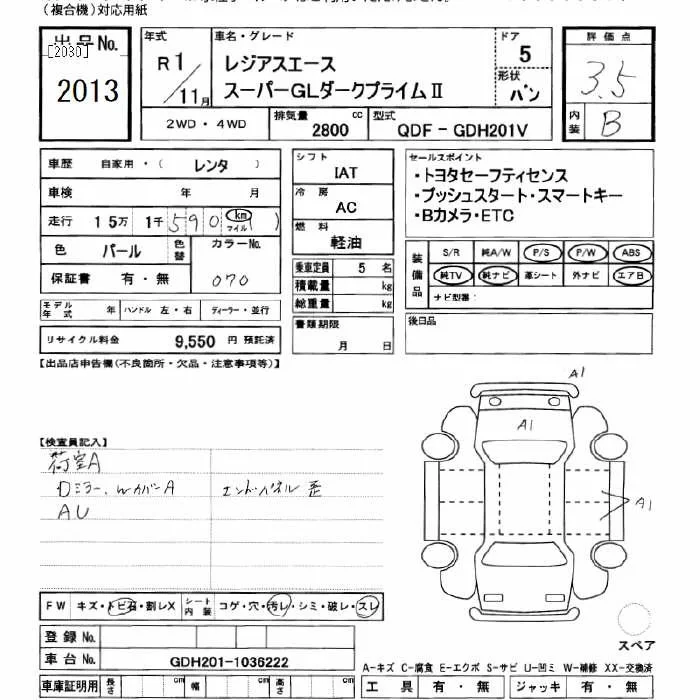 （複合機）対応用紙
出品No. [2030] 2013
年式 R1/11月
車名・グレード レジアスエース
スーパーGLダークプライムⅡ
ドア 5
形状 バン
評価点 3.5
内装 B
2WD・4WD
排気量 2800 cc
型式 QDF - GDH201V
車歴 自家用・( レンタ )
車検 年 月
走行 15万 1千 590 (km マイル)
色 パール
色替
カラーNo. 070
保証書 有・無
モデル年式 年 ハンドル 左・右 ディーラー・並行
リサイクル料金 9,550 円 預託済
シフト IAT
冷房 AC
燃料 軽油
乗車定員 5 名
積載量 kg
総重量 kg
書類期限 月 日
セールスポイント
・トヨタセーフティセンス
・プッシュスタート・スマートキー
・Bカメラ・ETC
装備品 S/R 純A/W P/S P/W ABS
純TV 純ナビ 革シート 外ナビ エアB
ナビ型番：
後日品
【出品店申告欄(不良箇所・欠品・注意事項等)】
【検査員記入】
荷室A
ロミラー、WカバーA エンドパネル歪
AU
A1
A1
A1
スペア
FW キズ・トビ石・割レX
シート内装 コゲ・穴・汚レ・シミ・破レ・スレ
登録No.
車台No. GDH201-1036222
車庫証明用 長さ cm 幅 cm 高さ cm
A-キズ C-腐食 E-エクボ S-サビ U-凹ミ W-補修 XX-交換済
工具 有・無 ジャッキ 有・無